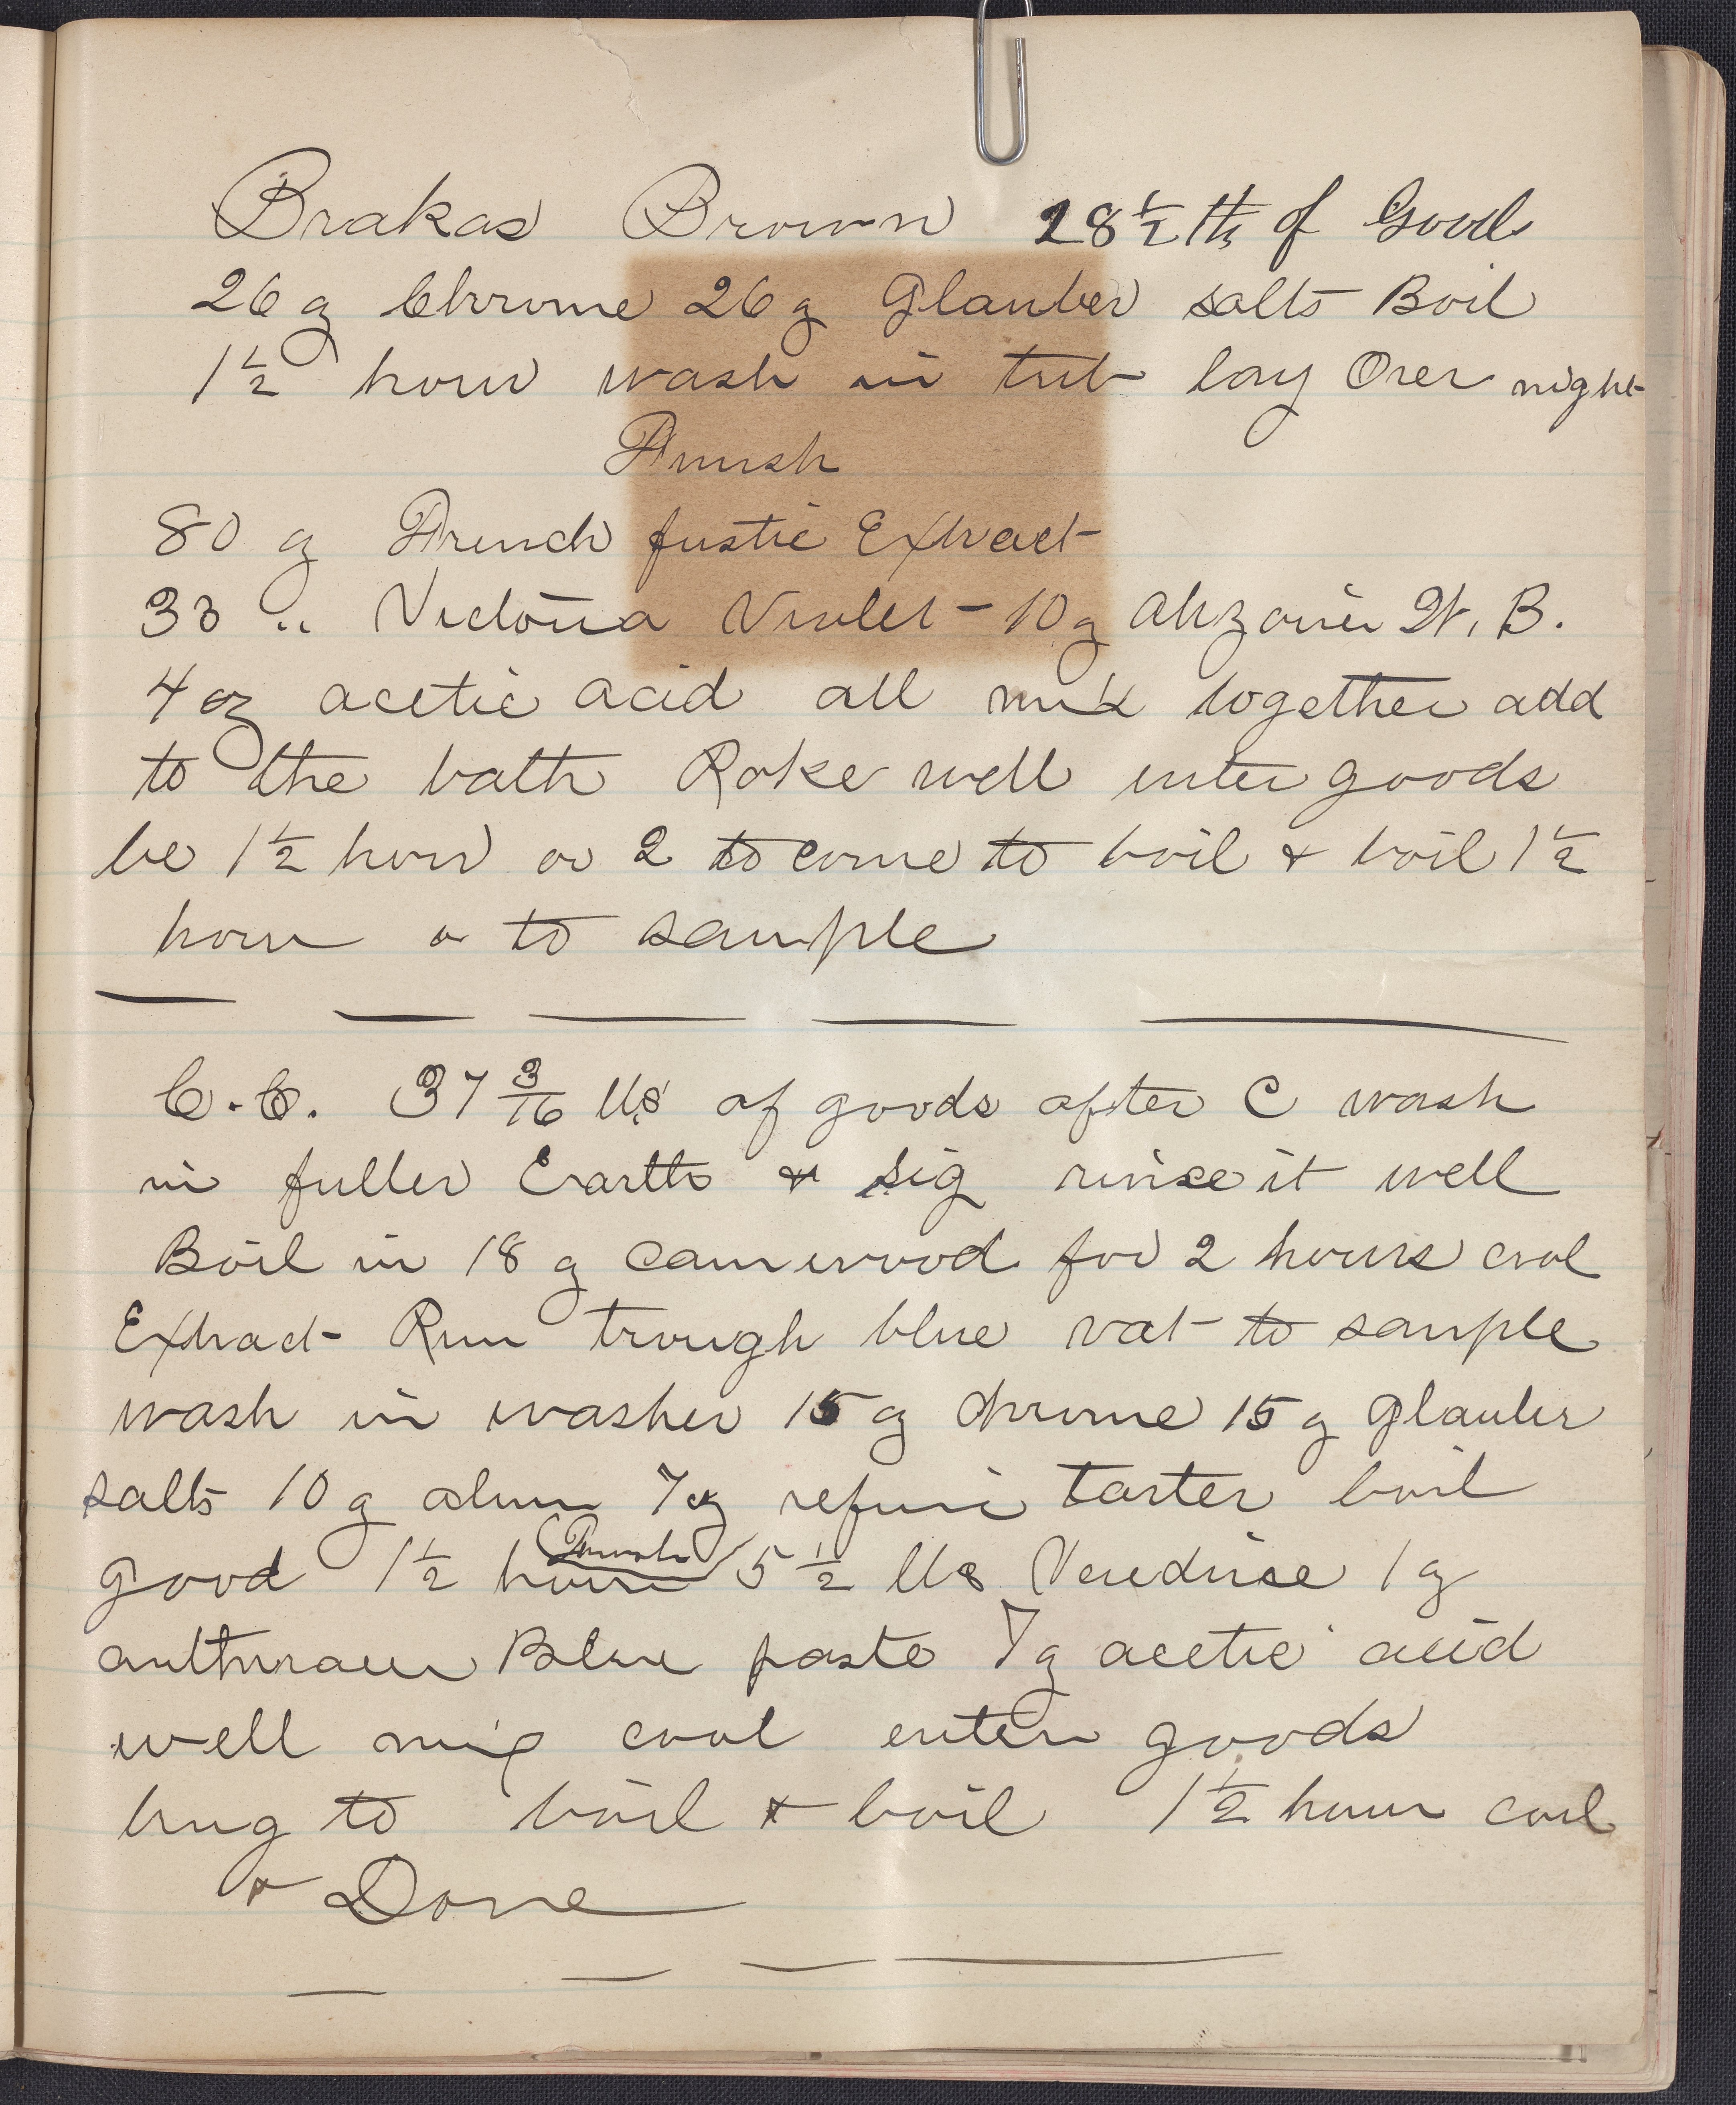 Brakas Brown 28 1/2 lb of Goods
26 oz Chrome 26 oz Glauber salts Boil
1 1/2 hour wash in tub lay Over night
Finish
80 oz French fustic Extract
33 " Victoria Violet - 10 oz Alizarin W. B.
4 oz acetic acid all mix together add
to the bath Rake well enter goods
be 1 1/2 hour or 2 to come to boil & boil 1 1/2
hour or to sample
C.C. 37 3/16 lbs of goods after C wash
in fuller Earth & sig rinse it well
Boil in 18 oz Camwood for 2 hours cool
Extract Run trough blue vat to sample
wash in washer 15 oz chrome 15 oz glauber
salts 10 oz alum 7 oz refine tarter boil
good 1 1/2 hour Finish 5 1/2 lbs 1 oz
Blue paste 7 oz acetic acid
well mix cool enter goods
bring to boil & boil 1 1/2 hour cool
& Done